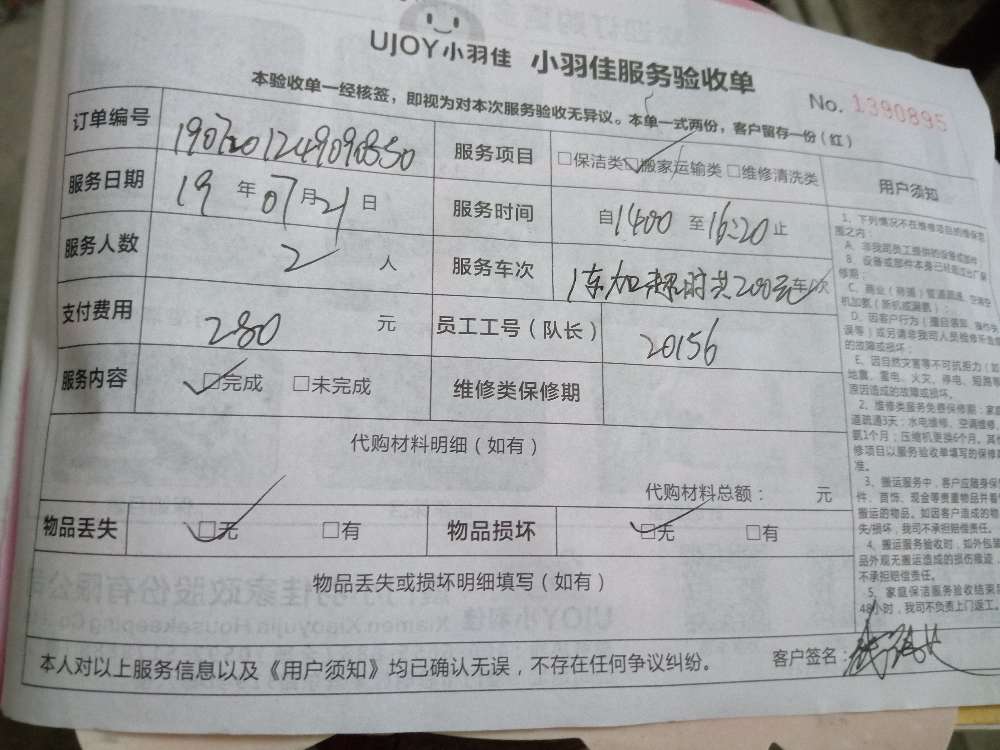 UJOY小羽佳 小羽佳服务验收单
No. 1390895
本验收单一经核签，即视为对本次服务验收无异议。本单一式两份，客户留存一份（红）
订单编号
服务项目 □保洁类 □搬家运输类 □维修清洗类
用户须知
服务日期 19年07月21日
服务时间 自1400至16:20止
服务人数 2人
服务车次 1车加 时共200元车/次
支付费用 280元
员工工号（队长） 20156
服务内容 □完成 □未完成
维修类保修期
代购材料明细（如有）
代购材料总额： 元
物品丢失 □无 □有
物品损坏 □无 □有
物品丢失或损坏明细填写（如有）
本人对以上服务信息以及《用户须知》均已确认无误，不存在任何争议纠纷。
客户签名：
1、下列情况不在维修项目的维保范
围之内：
A、非我司员工提供的设备或部件；
B、设备或部件本身已经超过出厂保
修期；
C、商业（房强）管道疏通、空调空
机加氨（新机或漏氨）；
D、因客户行为（擅自拆卸、操作失
误等）或另请非我司人员检修所造成
的故障或损坏；
E、因自然灾害等不可抗拒力（如
地震、雷电、火灾、停电、短路等
原因造成的故障或损坏。
2、维修类服务免费保修期：家庭
道疏通3天；水电维修、空调维修、
氨1个月；压缩机更换6个月。其他
修项目以服务验收单填写的保修期
准。
3、搬运服务中，客户应随身保管
件、首饰、现金等贵重物品并看
搬运的物品。如因客户造成的物
失/损坏，我司不承担赔偿责任。
4、搬运服务验收时，如外包装
品外观无搬运造成的损伤痕迹，
不承担赔偿责任。
5、家庭保洁服务验收结束
48小时，我司不负责上门返工。